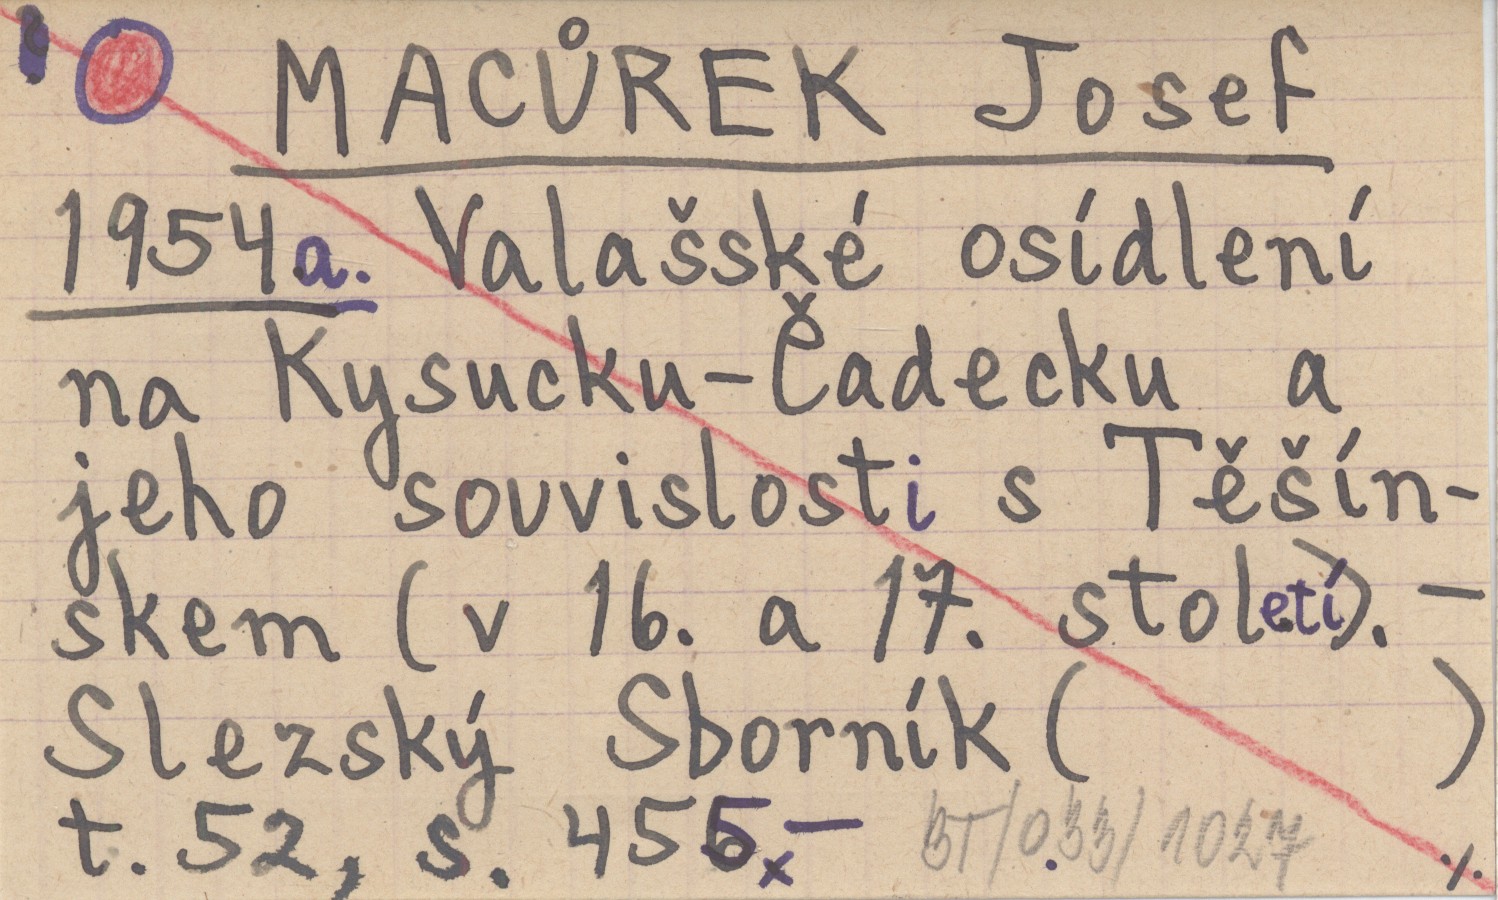 MACŮREK Josef
1954a. Valašské osídlení
na Kysucku-Čadecku a
jeho souvislosti s Těšín-
skem (v 16. a 17. století). –
Slezský Sborník ( )
t. 52, s. 455. – BT/033/1027